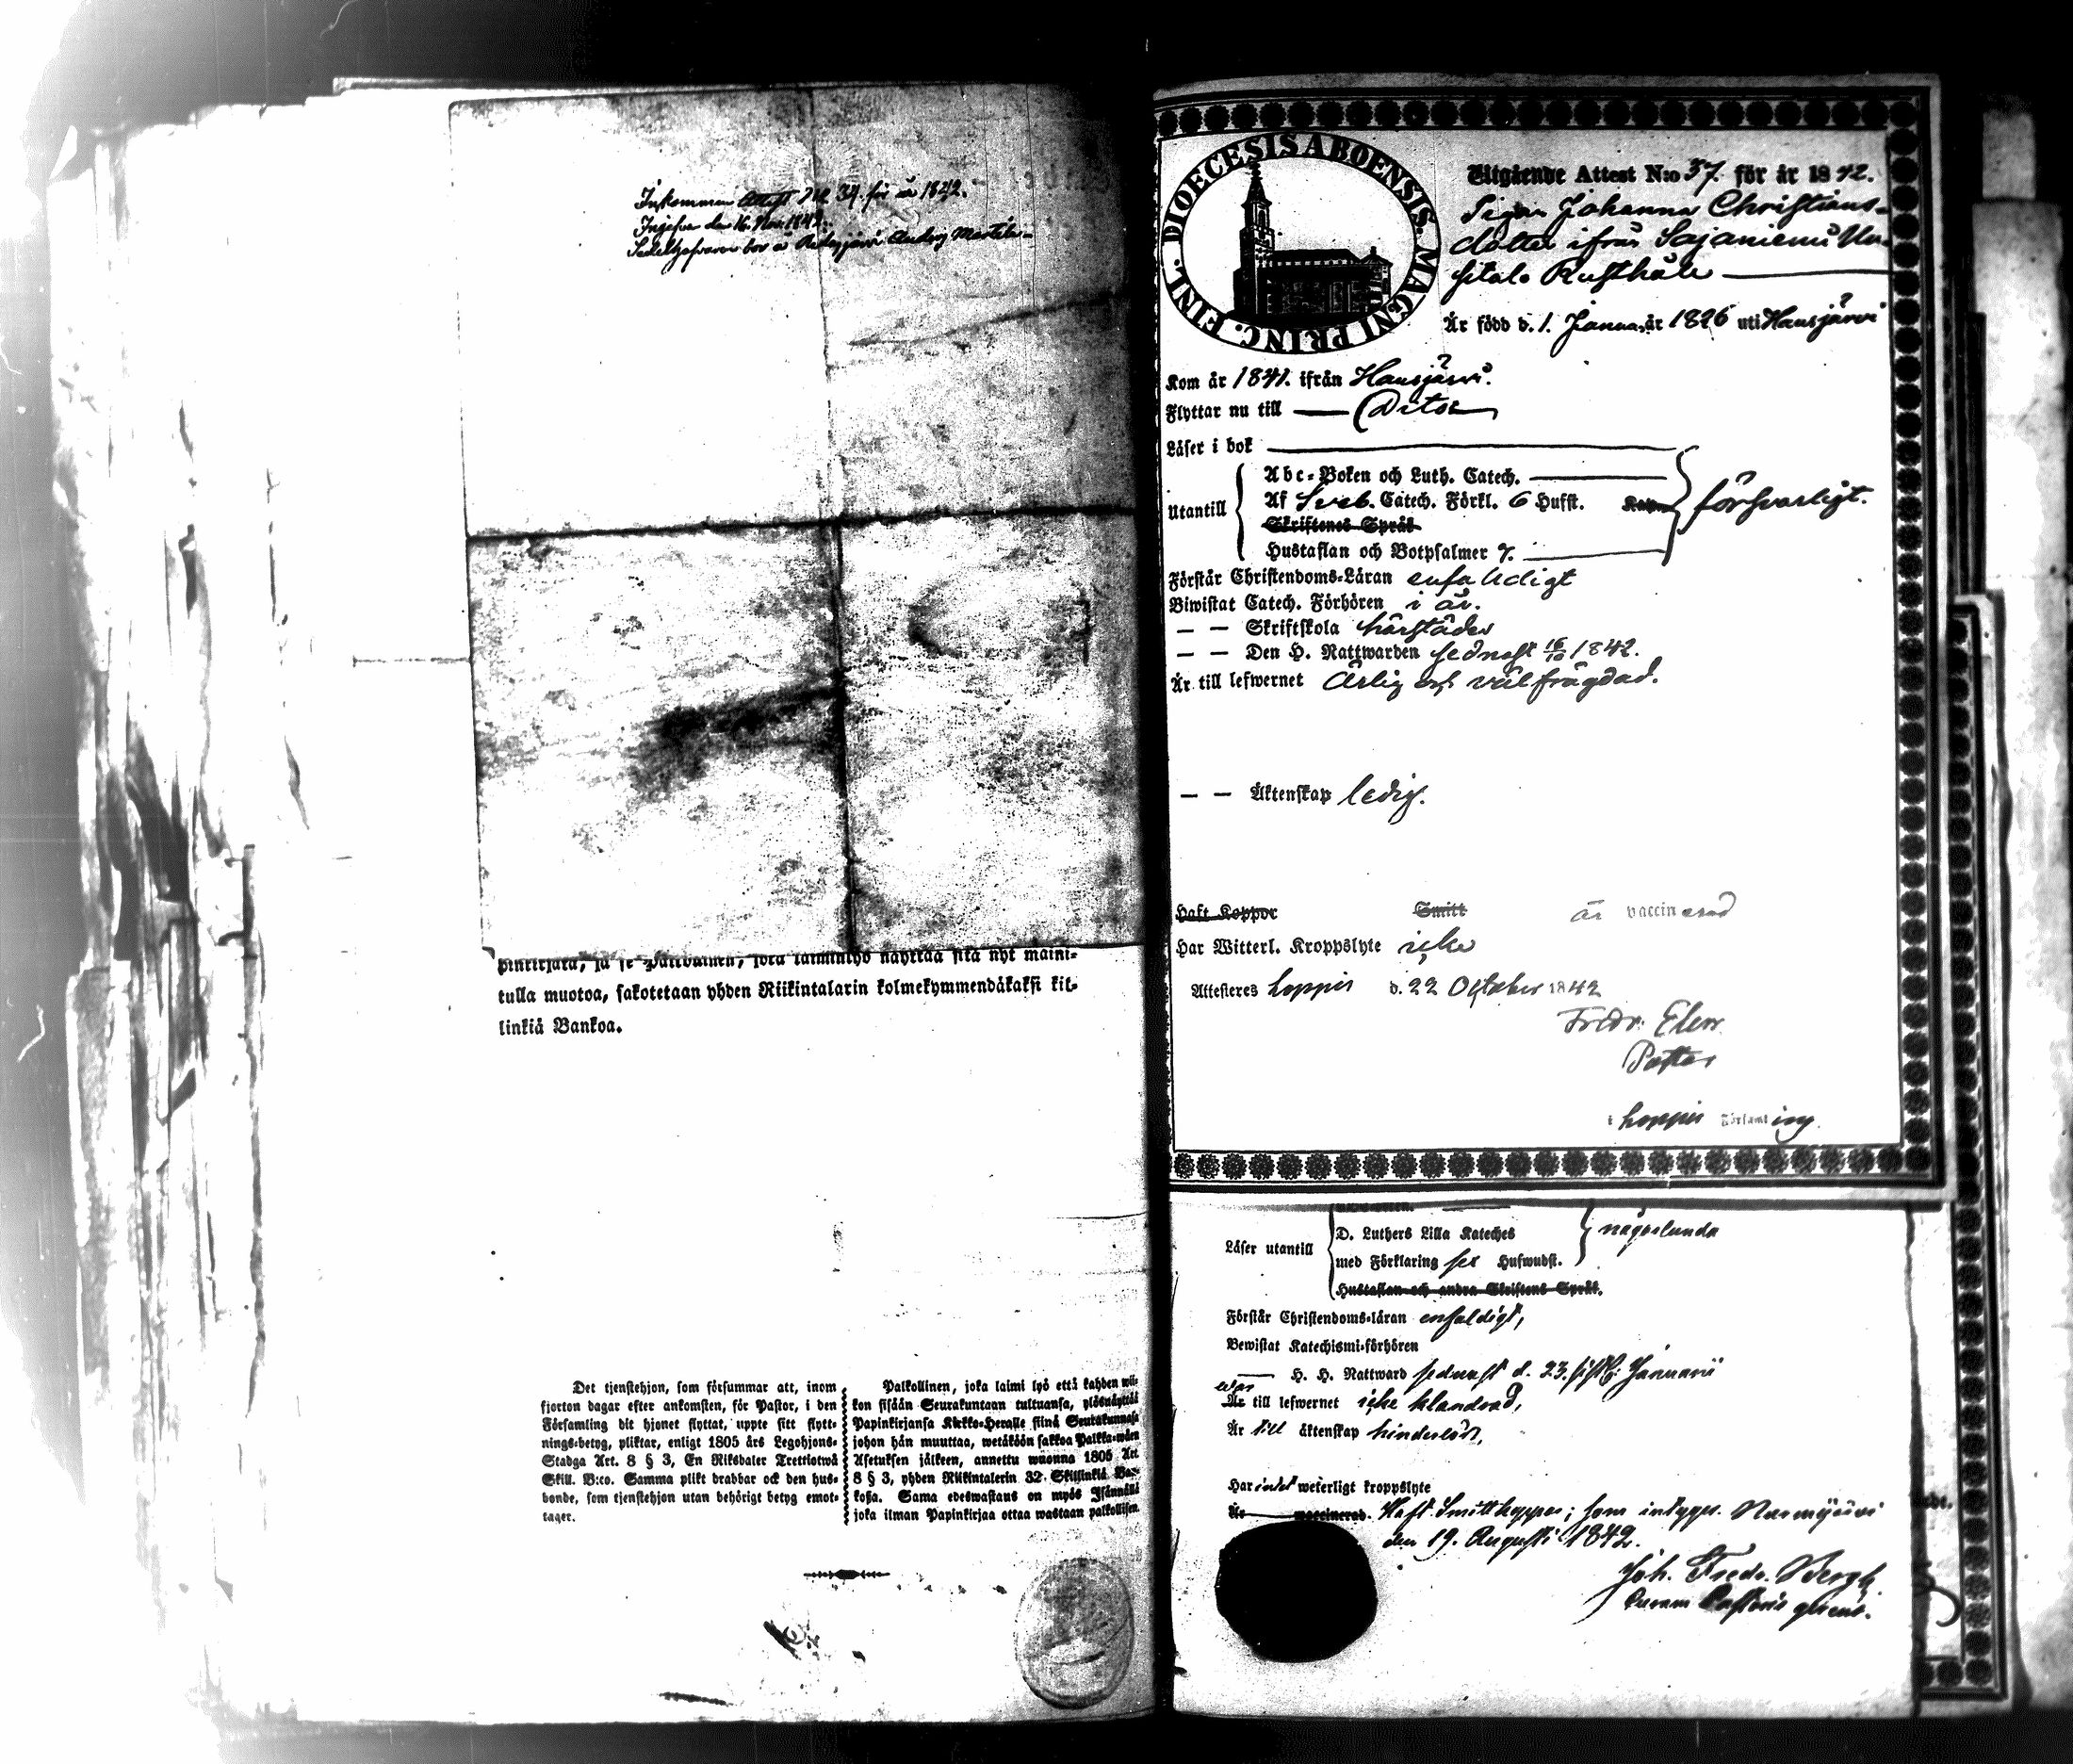 Inkommen Attest N:o 34. för år 1842.
Ingifven den 16. Nov. 1842.
bor å Anders Marttila
pinkirjata, ja se
tulla muotoa, sakotetaan yhden Riikintalarin kolmekymmendäkaksi kil-
linkiä Bankoa.
Det tjenstehjon, som försummar att, inom
fjorton dagar efter ankomsten, för Pastor, i den
Församling dit hjonet flyttat, uppte sitt flytt-
nings-betyg, pliktar, enligt 1805 års Legohjons-
Stadga Art. 8 § 3, En Riksdaler Trettiotwå
Skill. B:co. Samma plikt drabbar ock den hus-
bonde, som tjenstehjon utan behörigt betyg emot-
tager.
Palkollinen, joka laimi lyö että kahden wii-
kon sisään Seurakuntaan tultuansa, ylösnäyttää
Papinkirjansa Kirkko-Herralle siinä Seurakunnasa
johon hän muuttaa, wetäköön sakkoa Palkka-wäen
Asetuksen jälkeen, annettu wuonna 1805 Art.
8 § 3, yhden Riikintalerin 32 Skillinkiä Ban-
kosa. Sama edeswastaus on myös Isännällä
joka ilman Papinkirjaa ottaa wastaan palkollisen.
DIOECESIS ABOENSIS. MAGNI PRINC. FINL.
Utgående Attest N:o 37. för år 1842.
Pigan Johanna Christians-
dotter ifrån Sajaniemi Uu-
sitalo Rusthåll
Är född d. 1. Januari år 1826 uti Hausjärvi
Kom år 1841. ifrån Hausjärvi.
Flyttar nu till — Dito
Läser i bok
Utantill
Abc-Boken och Luth. Catech.
Af Sveb. Catech. Förkl. 6 Hufst.
Skriftenes Språk
Hustaflan och Botpsalmer 7.
försvarligt.
Förstår Christendoms-Läran enfaldigt
Biwistat Catech. Förhören i år.
— — Skriftskola härstädes
— — Den H. Nattwarden sednast 16/10 1842.
Är till lefwernet Ärlig och välfrägdad.
— — Äktenskap ledig.
Haft Koppor Smitt är vaccinerad
Har Witterl. Kroppslyte icke
Attesteres Loppis d. 22 October 1842
Fredr. Elers
Pastor
i Loppis Församling
Läser utantill
D. Luthers Lilla Kateches
med Förklaring sex Hufwudst.
Hustaflan och andra Skriftens Språk.
någorlunda
Förstår Christendoms-läran enfaldigt,
Bewistat Katechismi-förhören
— H. H. Nattward sednast d. 23. sistl. Januarii
war
Är till lefwernet icke klandrad,
Är till äktenskap hinderlös,
Har intet weterligt kroppslyte
Är vaccinerad. Haft Smittkoppor; som intygar. Nurmijärvi
den 19. Augusti 1842.
Joh. Fredr. Bergh.
Curam Pastoris gerens.